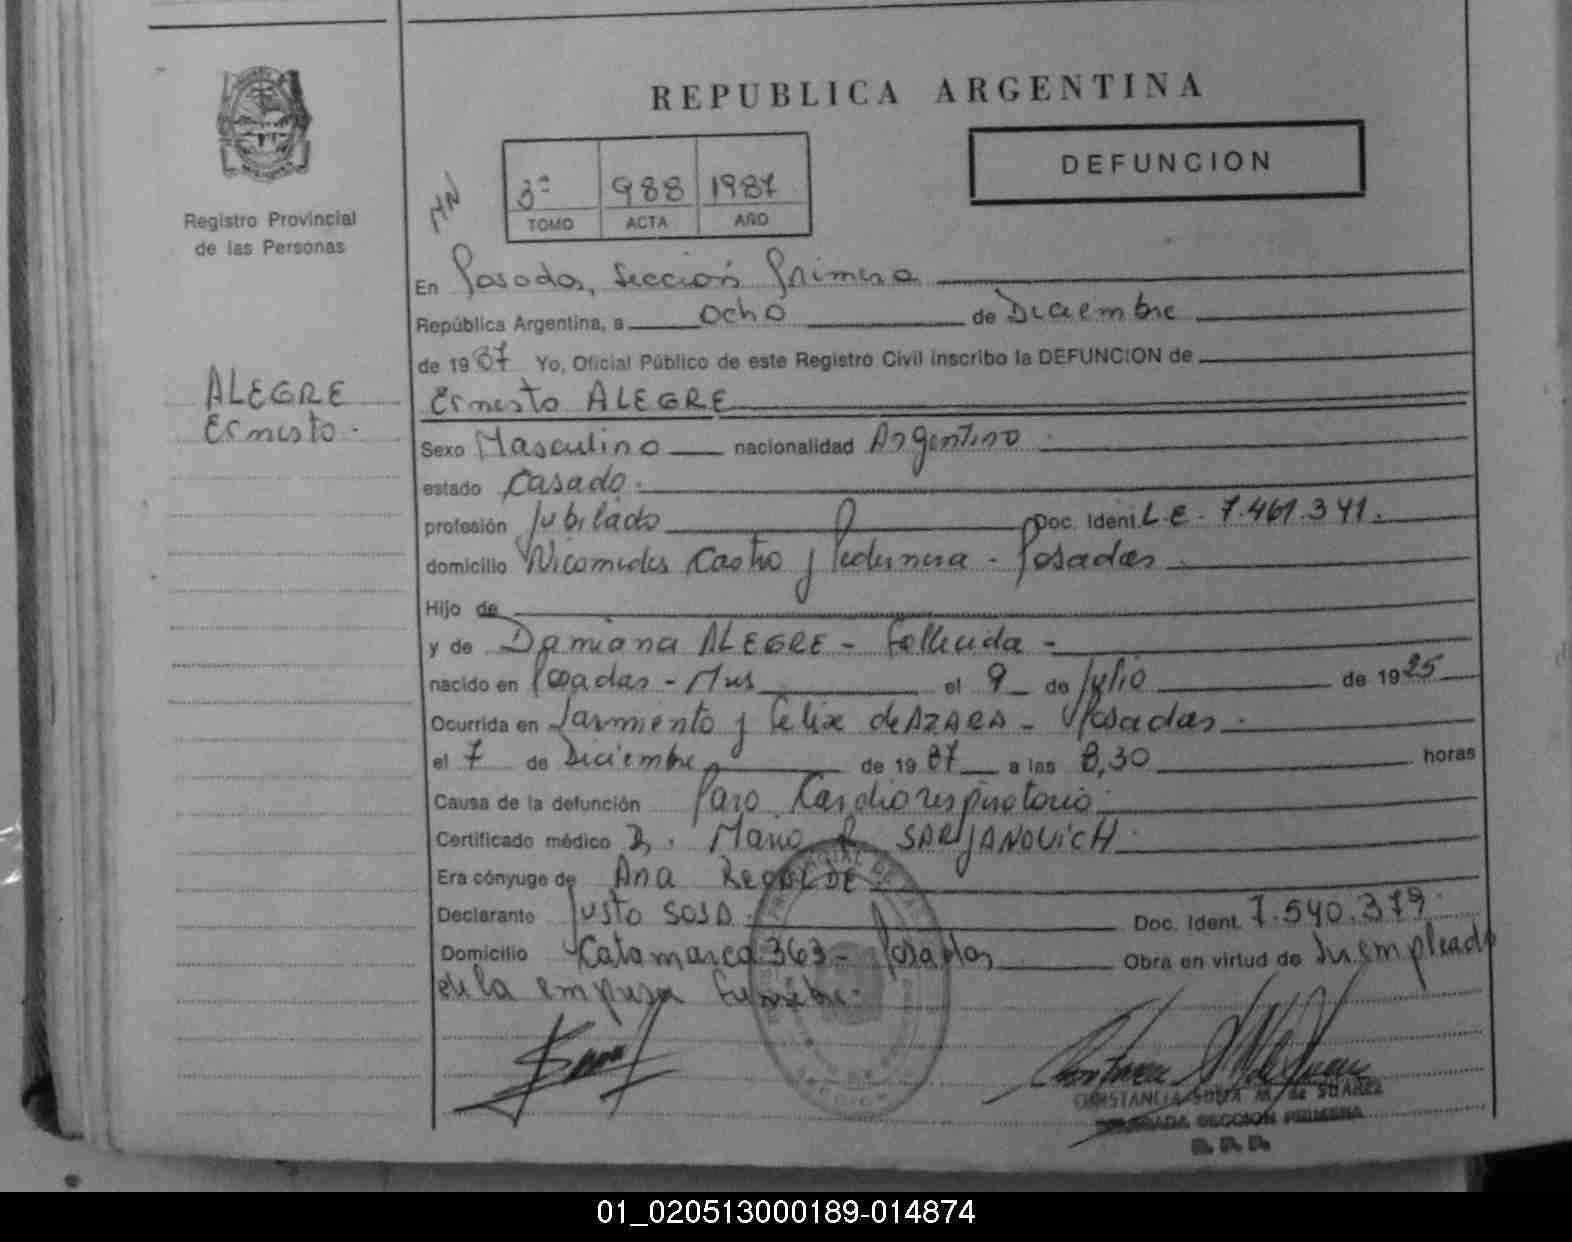 REPUBLICA ARGENTINA
DEFUNCION
3º 988 1987
TOMO ACTA AÑO
Registro Provincial
de las Personas
ALEGRE
Ernesto.
En Posadas, Sección Primera
República Argentina, a ocho de Diciembre
de 1987 Yo, Oficial Público de este Registro Civil inscribo la DEFUNCION de
Ernesto ALEGRE
Sexo Masculino nacionalidad Argentino
estado Casado.
profesión Jubilado Doc. Ident. L.E. 7.461.341.
domicilio Nicomedes Castro y Pedernera - Posadas
Hijo de
y de Damiana ALEGRE - Fallecida -
nacido en Posadas - Mnes el 9 de Julio de 1925
Ocurrida en Sarmiento y Felix de AZARA - Posadas.
el 7 de Diciembre de 1987 a las 8,30 horas
Causa de la defunción Paro Cardiorespiratorio.
Certificado médico Dr. Mario R. SARJANOVICH
Era cónyuge de Ana
Declarante Justo SOSA. Doc. Ident. 7.540.379.
Domicilio Catamarca 363 - Posadas Obra en virtud de Ser empleado
de la empresa fúnebre.
CONSTANCIA SOSA M. de SUAREZ
SECCION PRIMERA
01_020513000189-014874